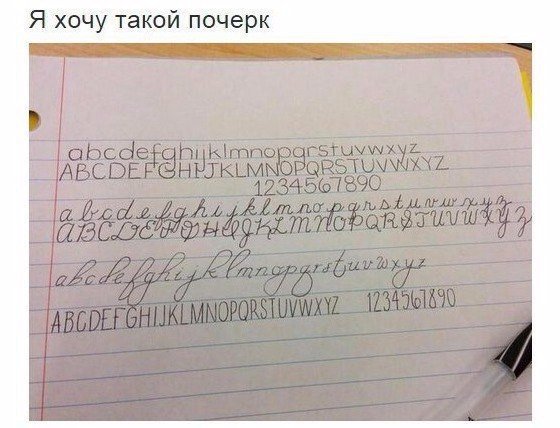 Я хочу такой почерк
abcdefghijklmnopqrstuvwxyz
ABCDEFGHIJKLMNOPQRSTUVWXYZ
1234567890
abcdefghijklmnopqrstuvwxyz
ABCDEFGHIJKLMNOPQRSTUVWXYZ
abcdefghijklmnopqrstuvwxyz
ABCDEFGHIJKLMNOPQRSTUVWXYZ 1234567890